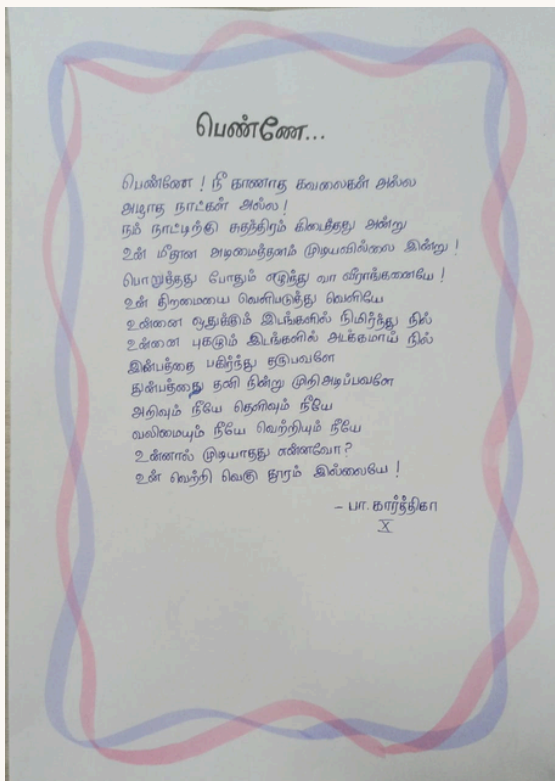 பெண்ணே...
பெண்ணே ! நீ காணாத கவலைகள் அல்ல
அழாத நாட்கள் அல்ல !
நம் நாட்டிற்கு சுதந்திரம் கிடைத்தது அன்று
உன் மீதான அடிமைத்தனம் முடியவில்லை இன்று !
பொறுத்தது போதும் எழுந்து வா வீராங்கனையே !
உன் திறமையை வெளிபடுத்து வெளியே
உன்னை ஒதுக்கும் இடங்களில் நிமிர்ந்து நில்
உன்னை புகழும் இடங்களில் அடக்கமாய் நில்
இன்பத்தை பகிர்ந்து தருபவளே
துன்பத்தை தனி நின்று முறிஅடிப்பவளே
அறிவும் நீயே தெளிவும் நீயே
வலிமையும் நீயே வெற்றியும் நீயே
உன்னால் முடியாதது என்னவோ?
உன் வெற்றி வெகு தூரம் இல்லையே !
– பா. கார்த்திகா
X